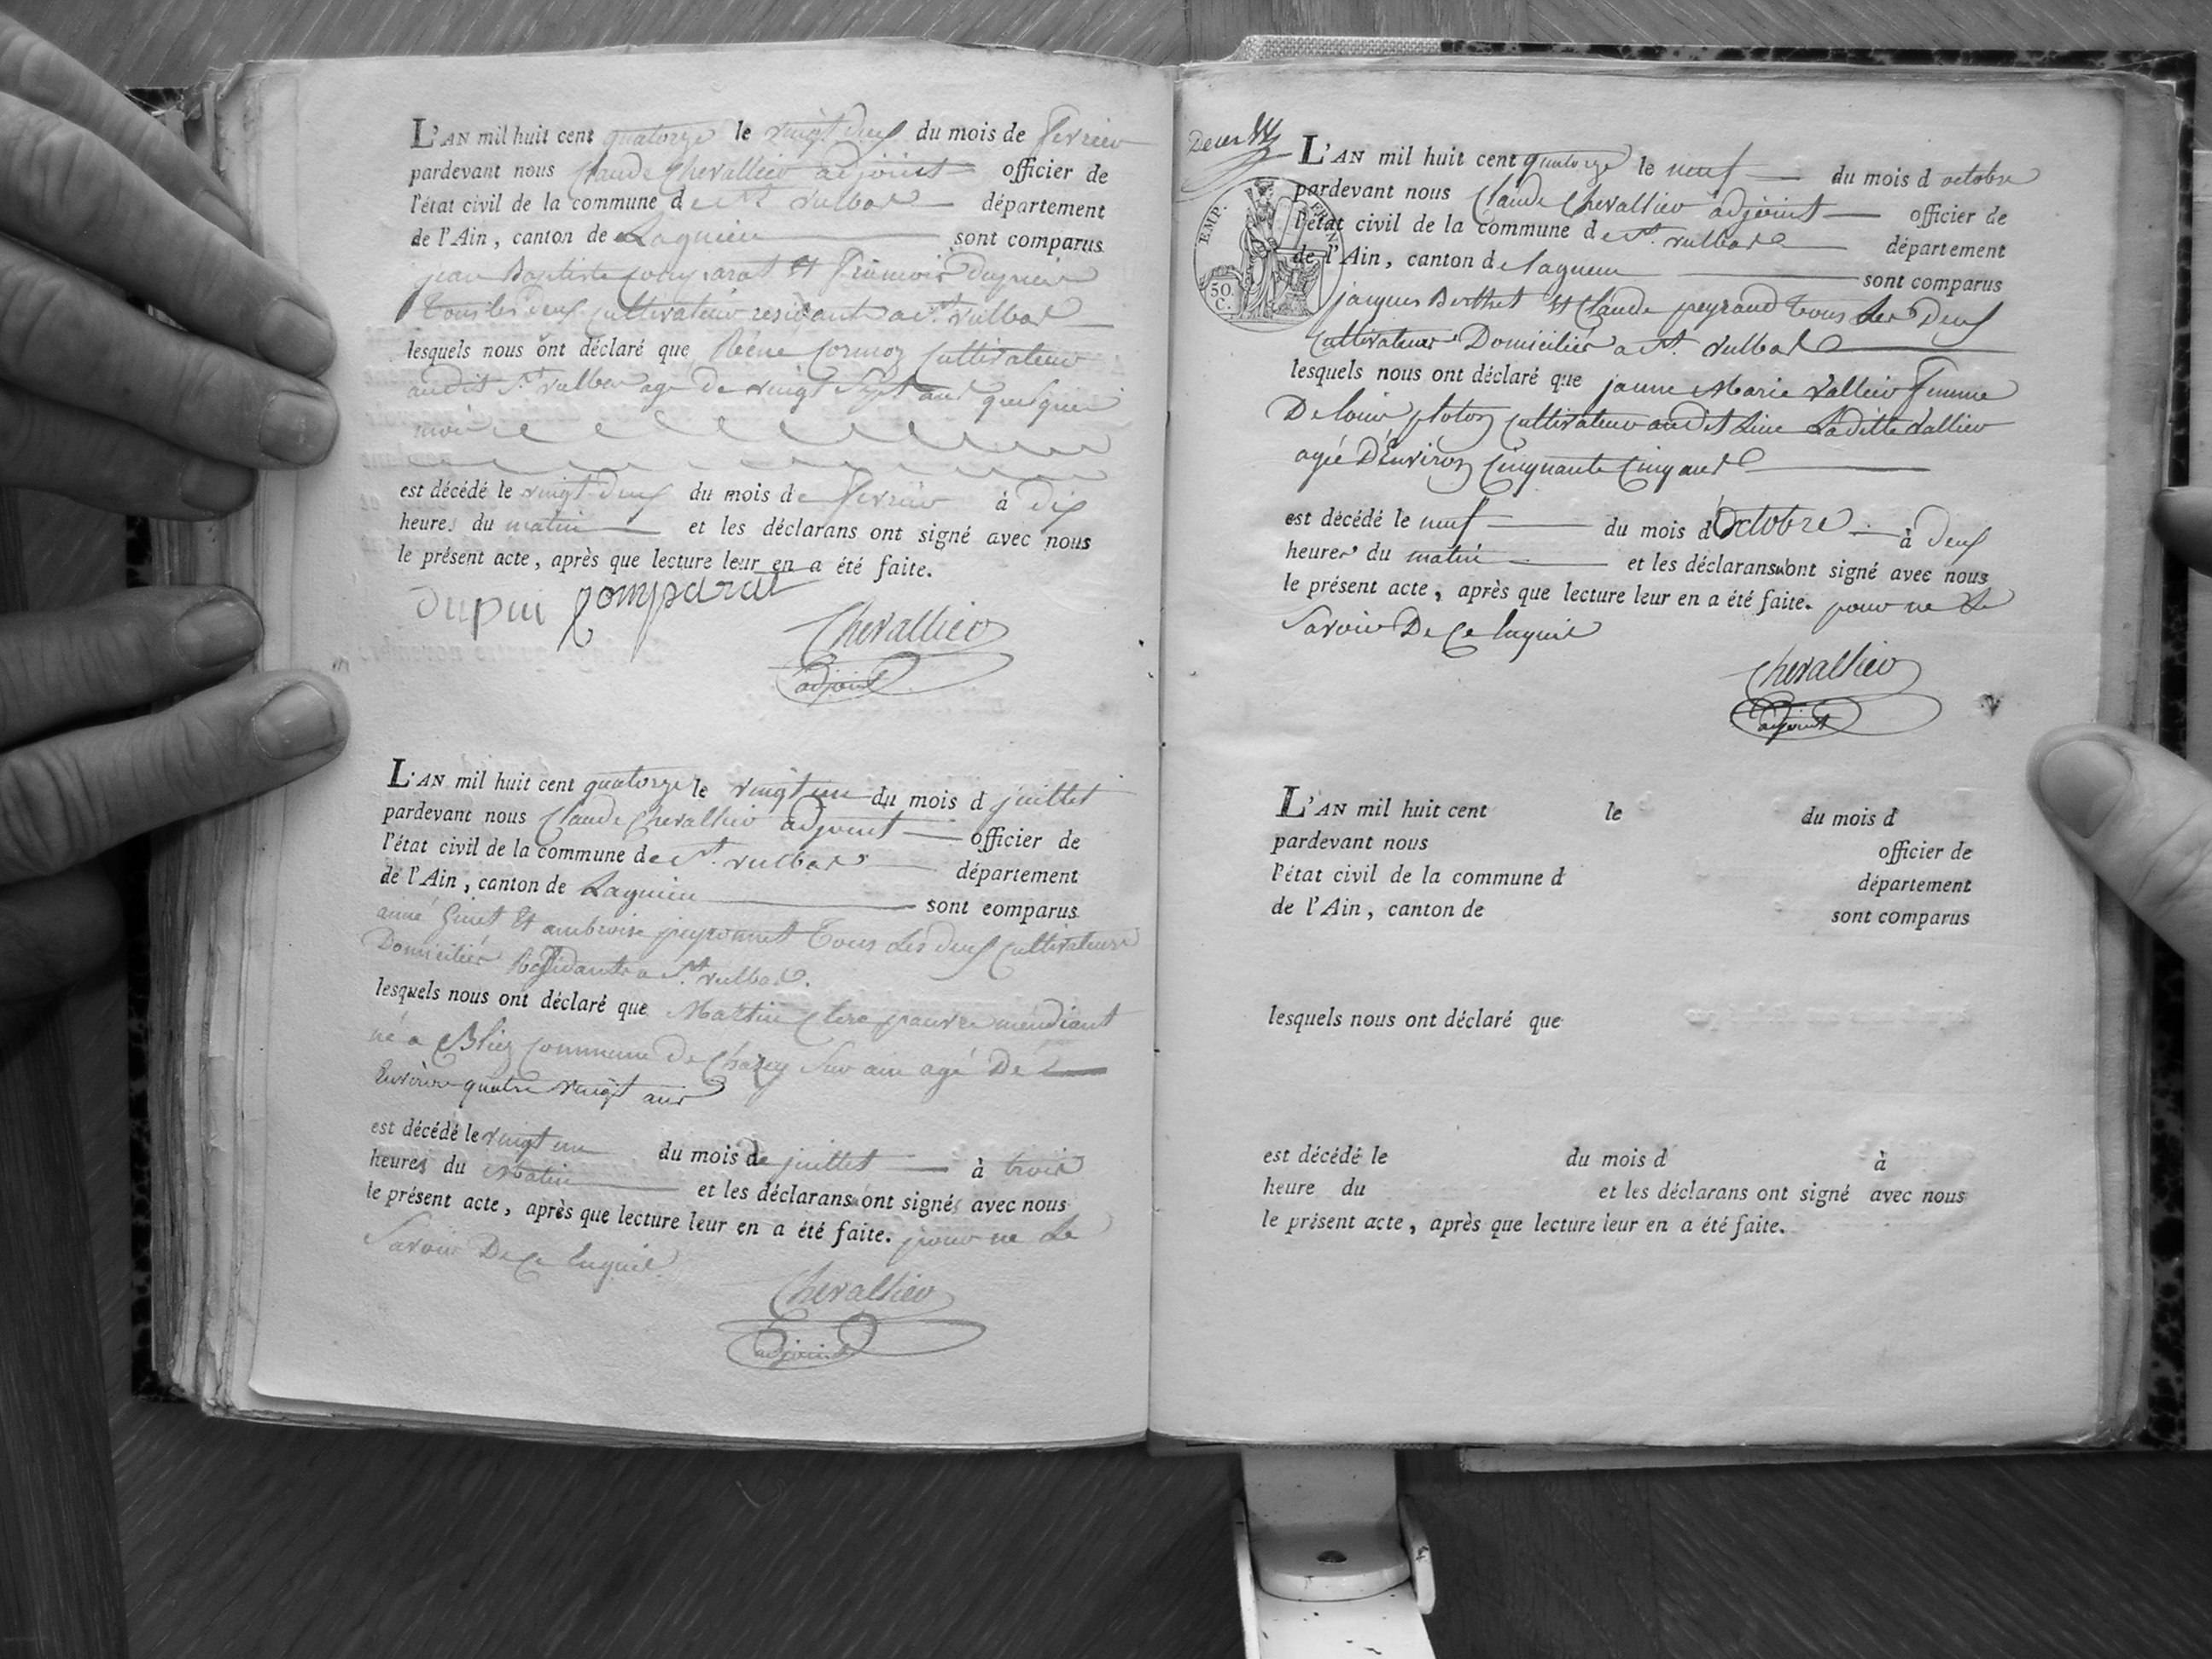 L'AN mil huit cent quatorze le vingt deux du mois de fevrier
pardevant nous Claude Chevallier adjoint officier de
l'état civil de la commune de St. vulbas département
de l'Ain, canton de Lagnieu sont comparus
jean Baptiste comparat Et François
tous les deux cultivateur residant a St. vulbas
lesquels nous ont déclaré que Cormoz Cultivateur
audit St. vulbas age de vingt Sept ans quelques
moi
est décédé le vingt Deux du mois de fevrier à dix
heures du matin et les déclarans ont signé avec nous
le présent acte, après que lecture leur en a été faite.
Dupui Comparat
Chevallier
adjoint
L'AN mil huit cent quatorze le vingt un du mois d juillet
pardevant nous Claude Chevallier adjoint officier de
l'état civil de la commune de St. vulbas département
de l'Ain, canton de Lagnieu sont comparus
Ginet Et ambroise peyronnet tous Les deux Cultivateurs
Domiciliés a St. vulbas.
lesquels nous ont déclaré que Martin Clere pauvre mendiant
né a Bliez commune de Chazey Sur ain agé De
Environ quatre vingt ans
est décédé le vingt un du mois de juillet à trois
heures du Matin et les déclarans n'ont signés avec nous
le présent acte, après que lecture leur en a été faite. pour ne Le
Savoir De Ce Enquis
Chevallier
adjoint
EMP. FRAN.
50. C.
L'AN mil huit cent quatorze le neuf du mois d octobre
pardevant nous Claude Chevallier adjoint officier de
l'état civil de la commune de St. vulbas département
de l'Ain, canton de lagnieu sont comparus
jacques Berthet Et Claude peyraud tous Les Deux
Cultivateurs Domiciliés a St. vulbas
lesquels nous ont déclaré que janne Marie Vallier femme
De louis ploton cultivateur audit Lieu Laditte Vallier
agée D'Environ Cinquante Cinq ans
est décédé le neuf du mois d'Octobre à deux
heures du matin et les déclarans n'ont signé avec nous
le présent acte, après que lecture leur en a été faite. pour ne Le
Savoir De Ce Enquis
Chevallier
adjoint
L'AN mil huit cent le du mois d
pardevant nous officier de
l'état civil de la commune d département
de l'Ain, canton de sont comparus
lesquels nous ont déclaré que
est décédé le du mois d à
heure du et les déclarans ont signé avec nous
le présent acte, après que lecture leur en a été faite.